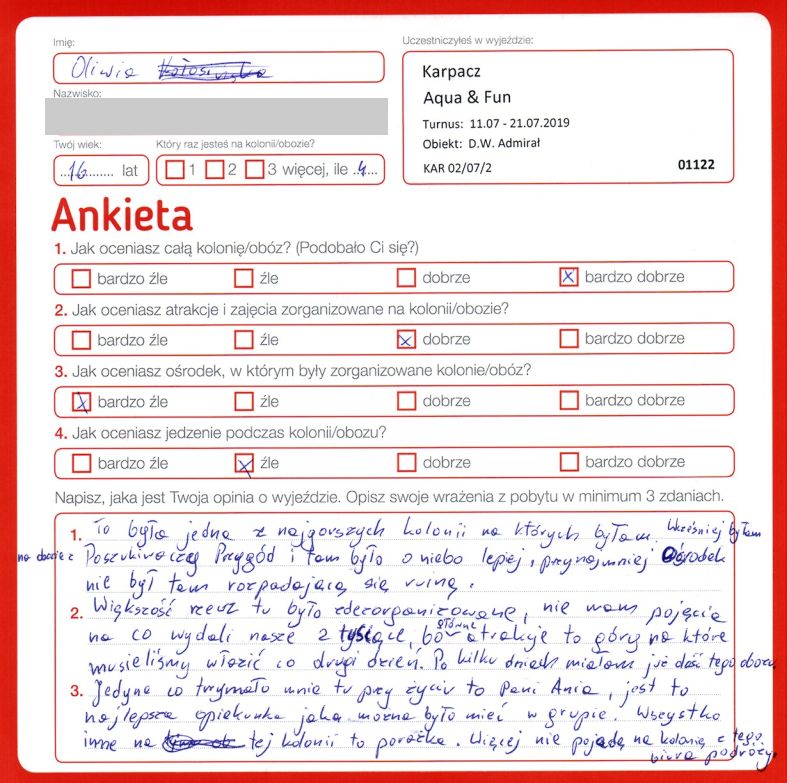 Imię:
Oliwia
Nazwisko:
Twój wiek:
..16........ lat
Który raz jesteś na kolonii/obozie?
1 2 3 więcej, ile ..4....
Uczestniczyłeś w wyjeździe:
Karpacz
Aqua & Fun
Turnus: 11.07 - 21.07.2019
Obiekt: D.W. Admirał
KAR 02/07/2 01122
Ankieta
1. Jak oceniasz całą kolonię/obóz? (Podobało Ci się?)
bardzo źle źle dobrze bardzo dobrze
2. Jak oceniasz atrakcje i zajęcia zorganizowane na kolonii/obozie?
bardzo źle źle dobrze bardzo dobrze
3. Jak oceniasz ośrodek, w którym były zorganizowane kolonie/obóz?
bardzo źle źle dobrze bardzo dobrze
4. Jak oceniasz jedzenie podczas kolonii/obozu?
bardzo źle źle dobrze bardzo dobrze
Napisz, jaka jest Twoja opinia o wyjeździe. Opisz swoje wrażenia z pobytu w minimum 3 zdaniach.
1. To była jedna z najgorszych kolonii na których byłam. Wcześniej byłam
na obozie z Poszukiwaczey Przygód i tam było o niebo lepiej, przynajmniej Ośrodek
nie był tam rozpadającą się ruiną.
2. Większość rzeczy tu było zdezorganizowane, nie mam pojęcia
na co wydali nasze 2 tysiące, bo główne atrakcje to góry na które
musieliśmy włazić co drugi dzień. Po kilku dniach miałam już dość tego obozu
3. Jedyne co trzymało mnie tu przy życiu to Pani Ania, jest to
najlepsza opiekunka jaką można było mieć w grupie. Wszystko
inne na tej kolonii to porażka. Więcej nie pojadę na kolonię z tego
biura podróży.